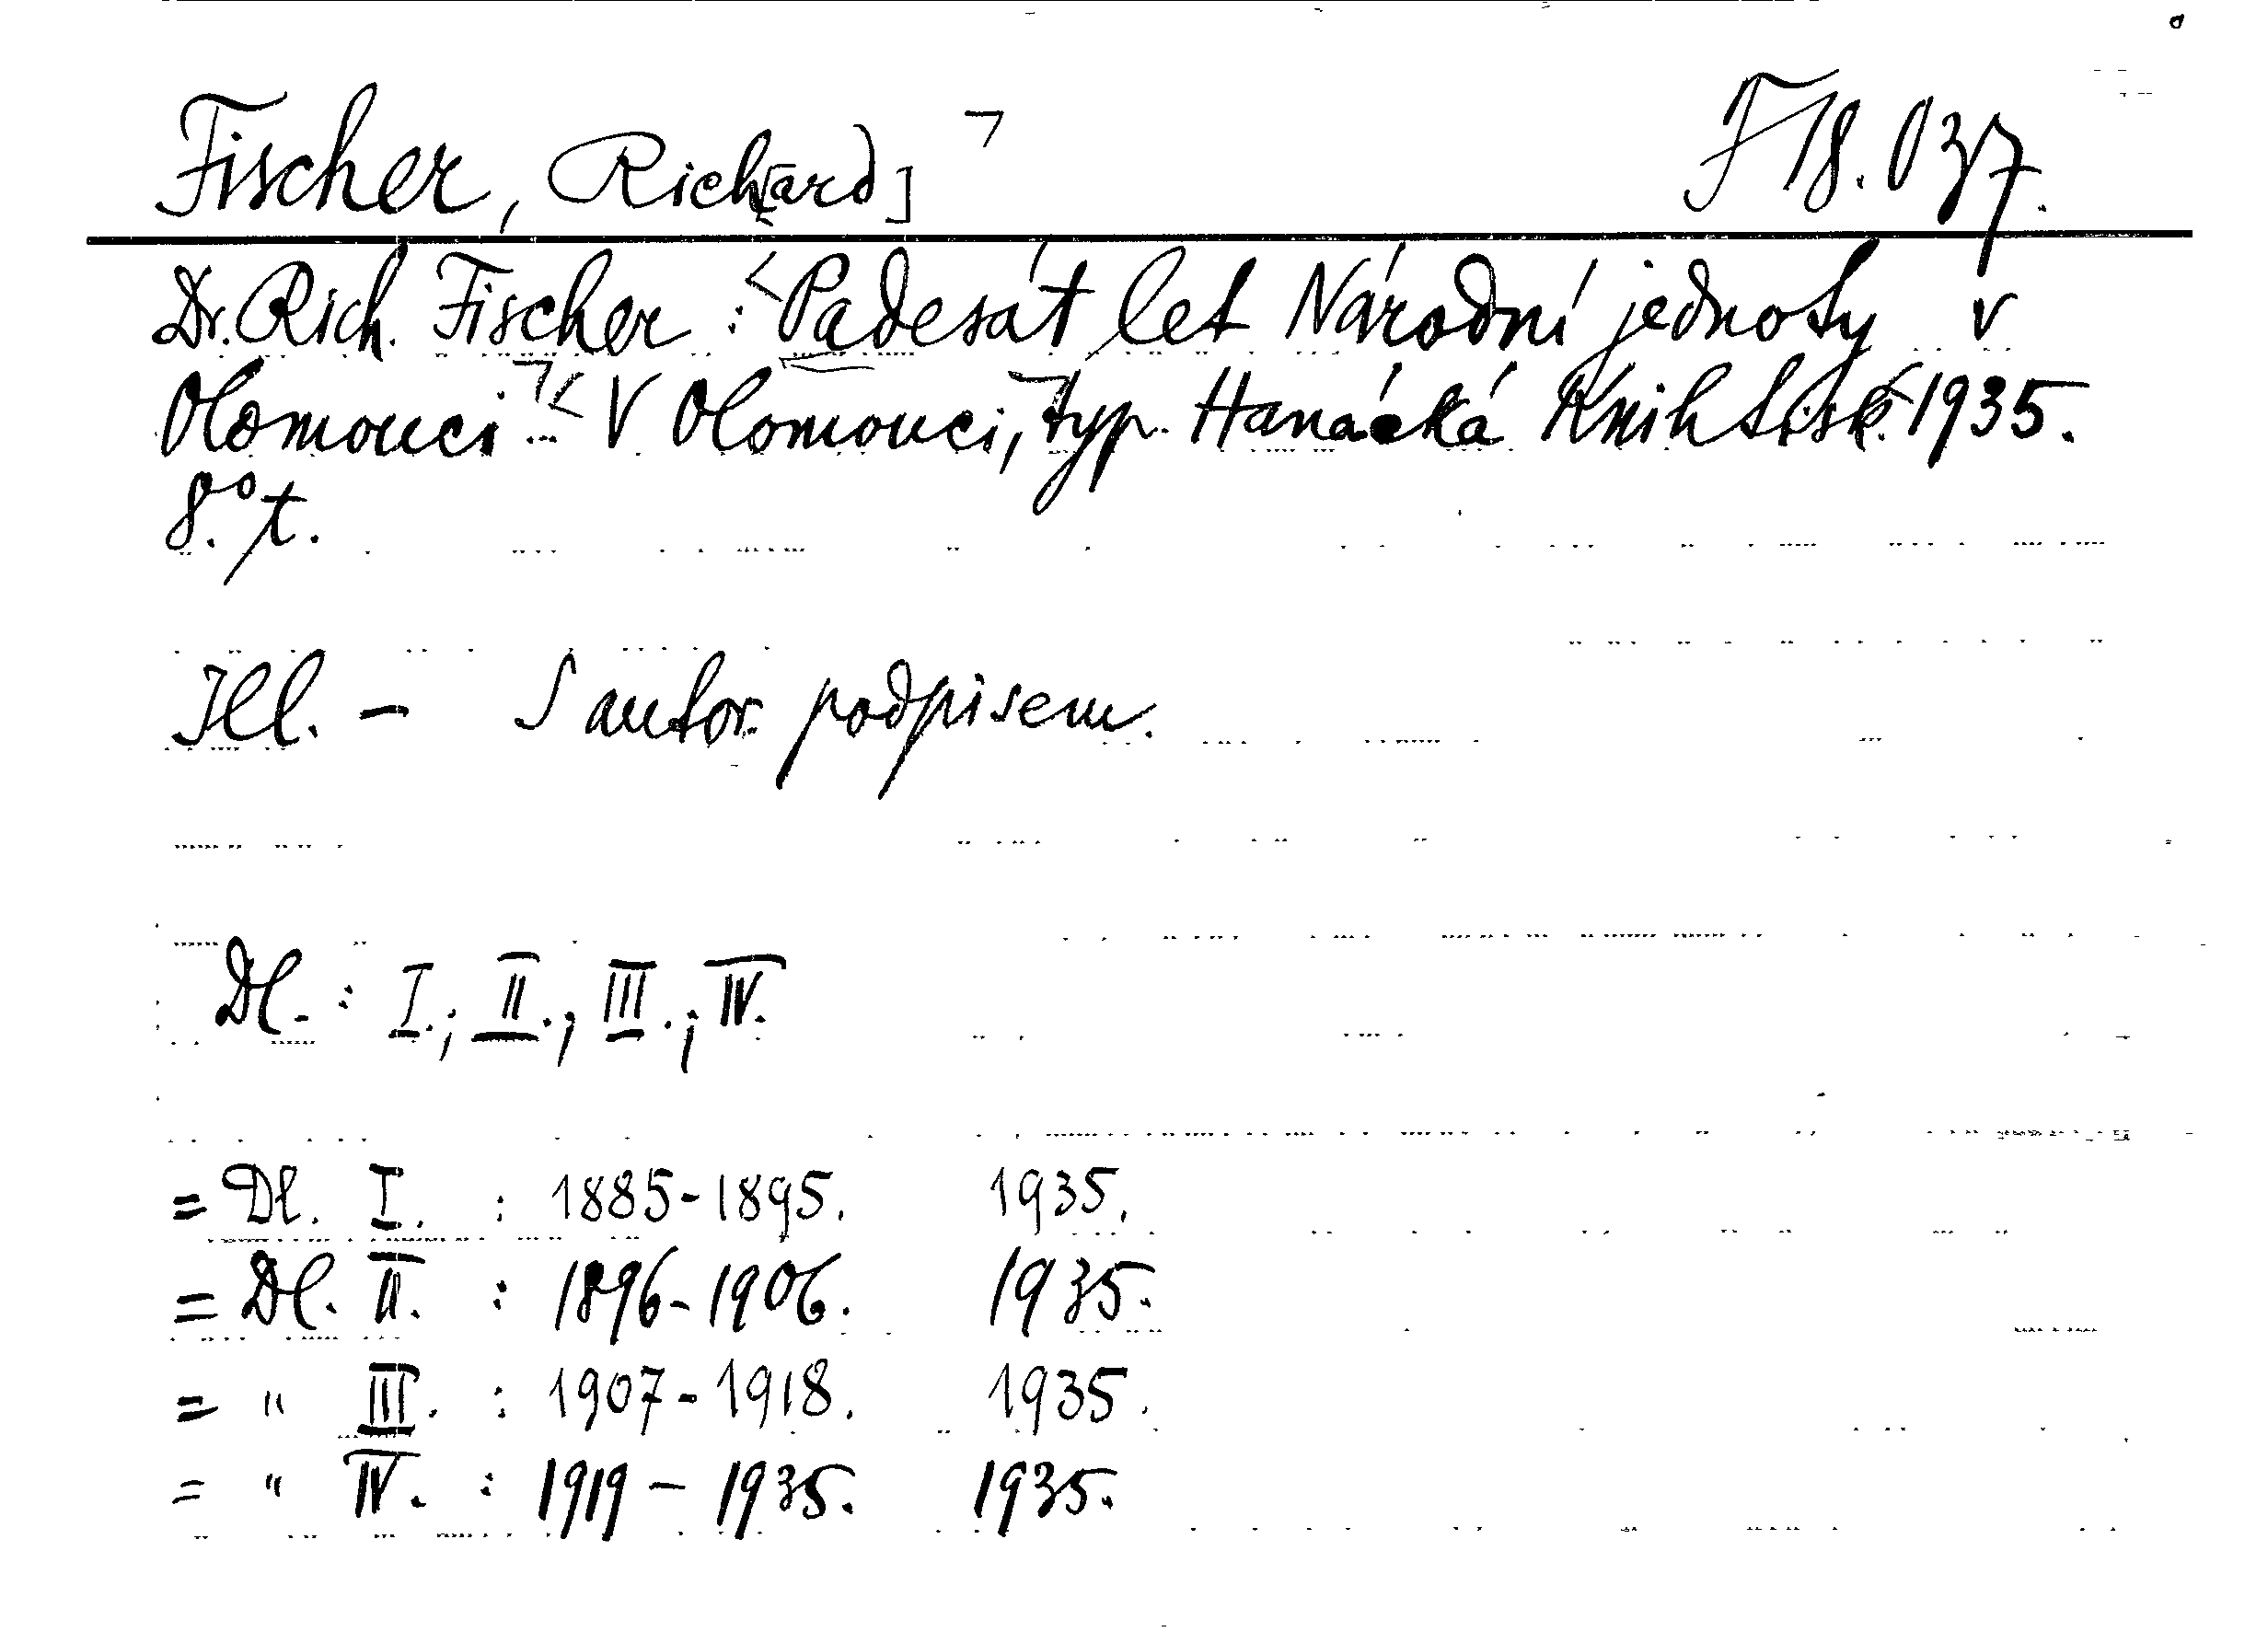 Fischer, Rich[ard] F 18.037.
Dr. Rich. Fischer : Padesát let Národní jednoty v
Olomouci. V Olomouci, typ. Hanácká Knihtisk. 1935.
8.° t.
Ill. - S autor. podpisem.
Dl. : I.; II.; III.; IV.
= Dl. I. : 1885-1895. 1935.
= Dl. II. : 1896-1906. 1935.
= " III. : 1907-1918. 1935.
= " IV. : 1919-1935. 1935.